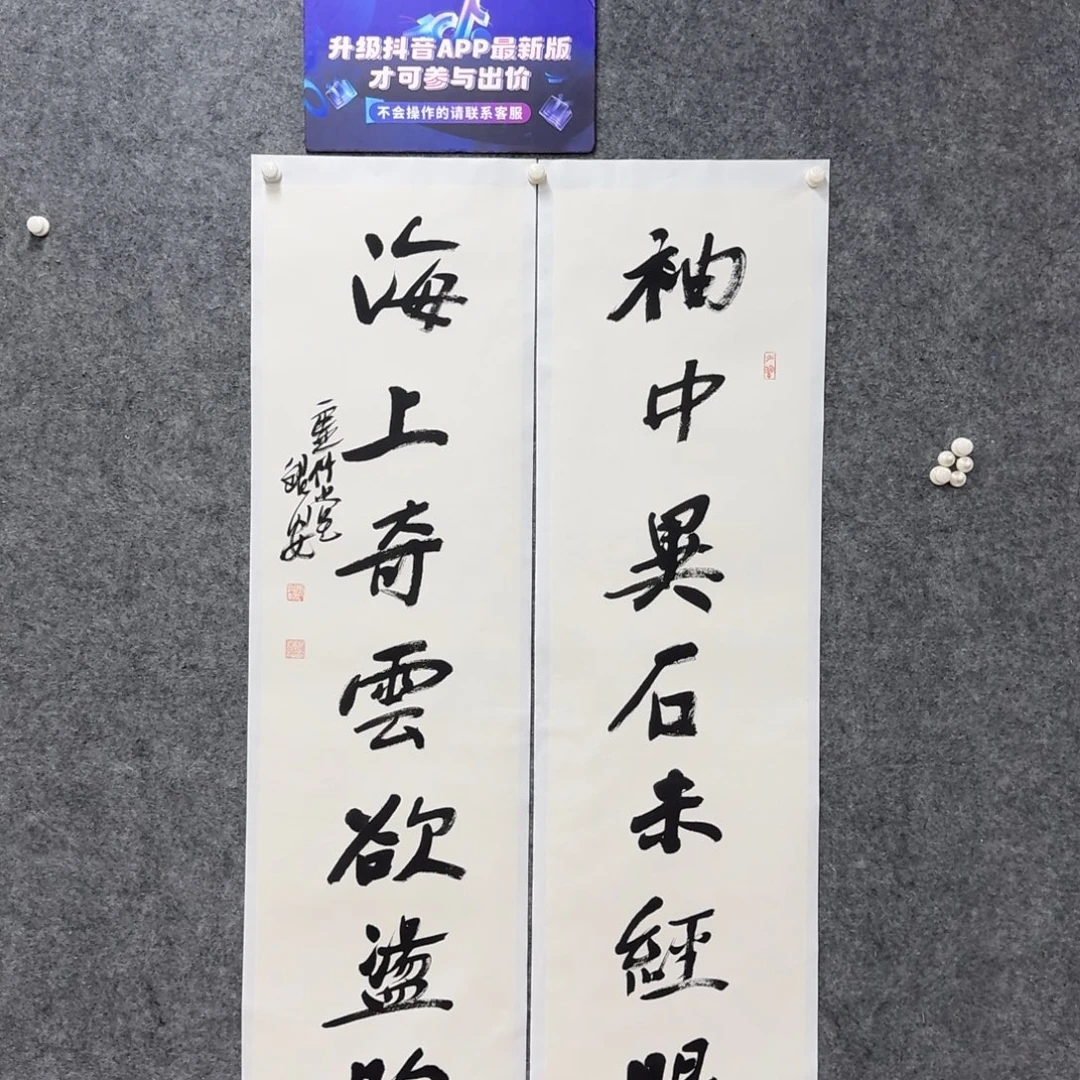 升级抖音APP最新版
才可参与出价
不会操作的请联系客服
袖中異石未經
海上奇雲欲盪